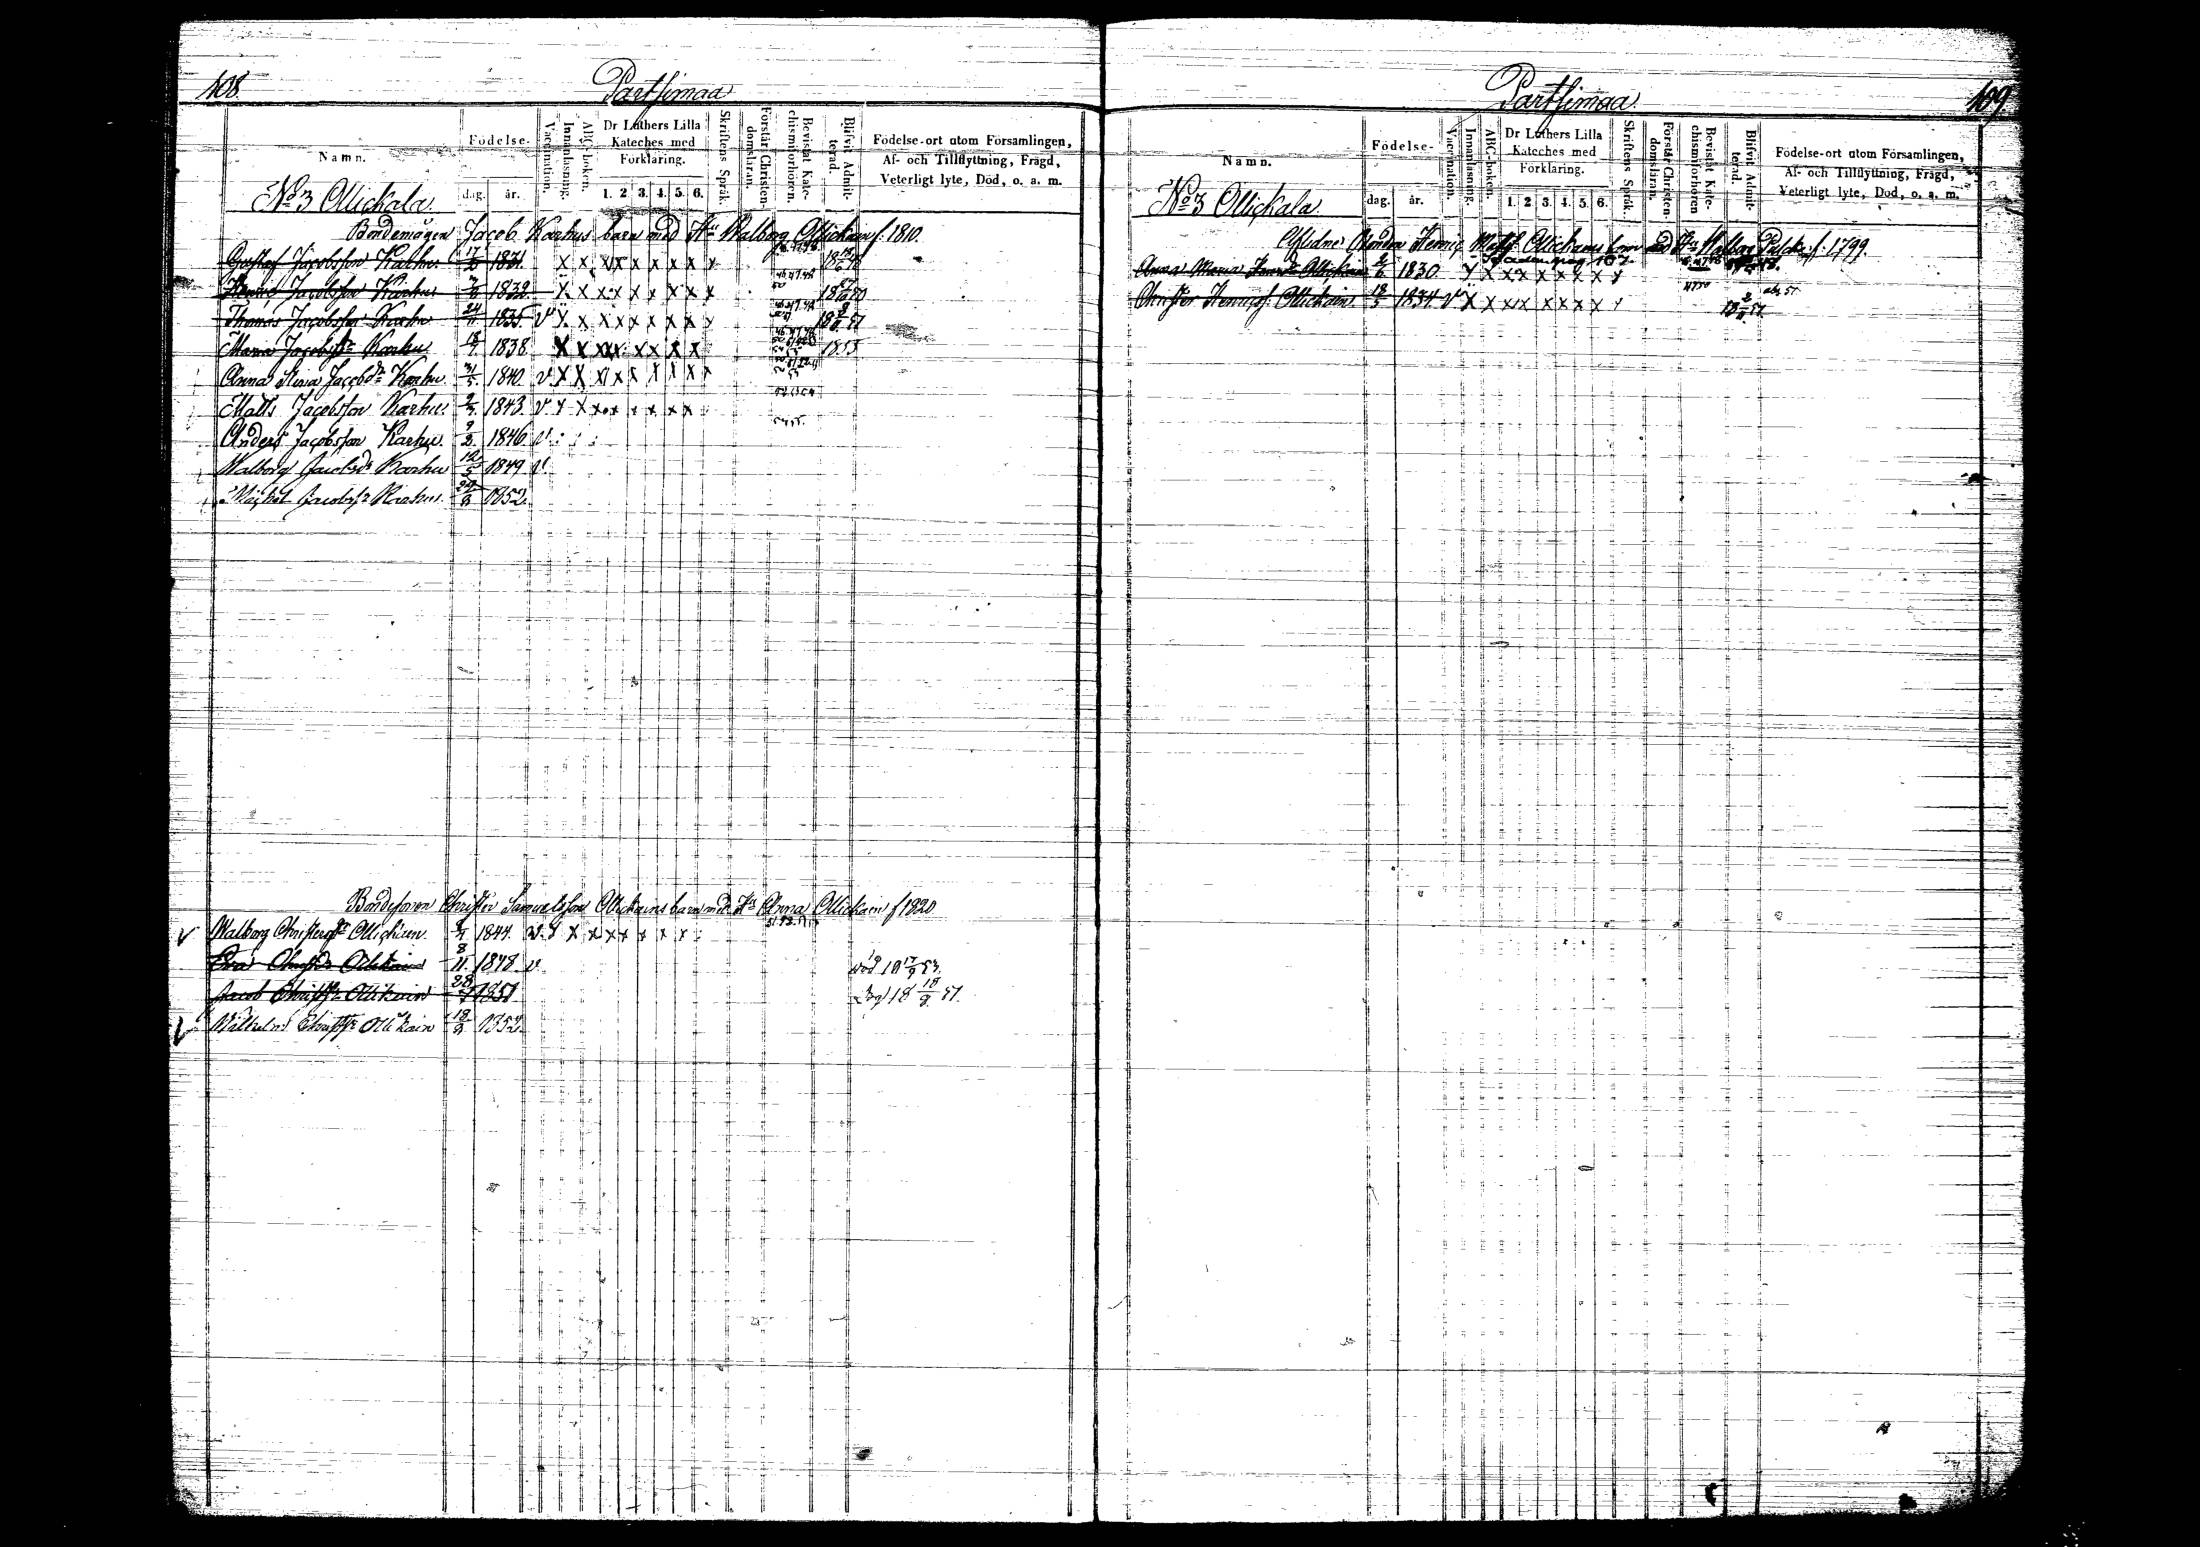 108.
Partsimaa
Namn.
Födelse-
dag.
år.
Vaccination.
Innanläsning.
ABC-boken.
Dr Luthers Lilla
Kateches med
Förklaring.
1. 2. 3. 4. 5. 6.
Skriftens Språk.
Förstår Christen-
domsläran.
Bevistat Kate-
chismiförhören.
Blifvit Admit-
terad.
Födelse-ort utom Församlingen,
Af- och Tillflyttning, Frägd,
Veterligt lyte, Död, o. a. m.
No 3 Ollickala.
Bondemågen Jacob Karhus barn med Hu Walborg Ollickain f. 1810.
Gustaf Jacobsson Karhu 1831. x x x x x x x x x
Jacobsson Karhu 1832. x x x x x x x x x
Thomas Jacobsson Karhu 24/11 1835. v x x x x x x x x x
Maria Jacobsdr Karhu 1838. x x x x x x x x 1853
Anna Stina Jacobsdr Karhu 31/5. 1840. v x x x x x x x x x
Matts Jacobsson Karhu 1843. v x x x x x x x x
Anders Jacobsson Karhu 9/2. 1846 v
Walborg Jacobsdr Karhu 12/5 1849 v
Michel Jacobss Karhu. 1852.
Bondesonen Christer Samuelsson Ollickains barn med Hu Anna Ollickain f 1820
Walborg Christersdr Ollickain. 1844. v x x x x x x x x
Eva Christsdr Ollikain 8/11. 1848. v död 18 17/9 53.
Jacob Christss Ollikain 1851 18 18/9. 51.
Wilhelm Christss Ollikain 18/9 1852.
Partsimaa.
109.
Namn.
Födelse-
dag.
år.
Vaccination.
Innanläsning.
ABC-boken.
Dr Luthers Lilla
Kateches med
Förklaring.
1. 2. 3. 4. 5. 6.
Skriftens Språk.
Förstår Christen-
domsläran.
Bevistat Kate-
chismiförhören
Blifvit Admit-
terad.
Födelse-ort utom Församlingen,
Af- och Tillflyttning, Frägd,
Veterligt lyte, Död, o. a. m.
No 3 Ollickala.
Aflidne Bonden Henric Matss. Ollickains barn med Hu Walborg f. 1799.
Anna Maria Ollickain 2/6 1830. x x x x x x x x x
Christer Henricss. Ollickain. 18/5 1834. v x x x x x x x x x